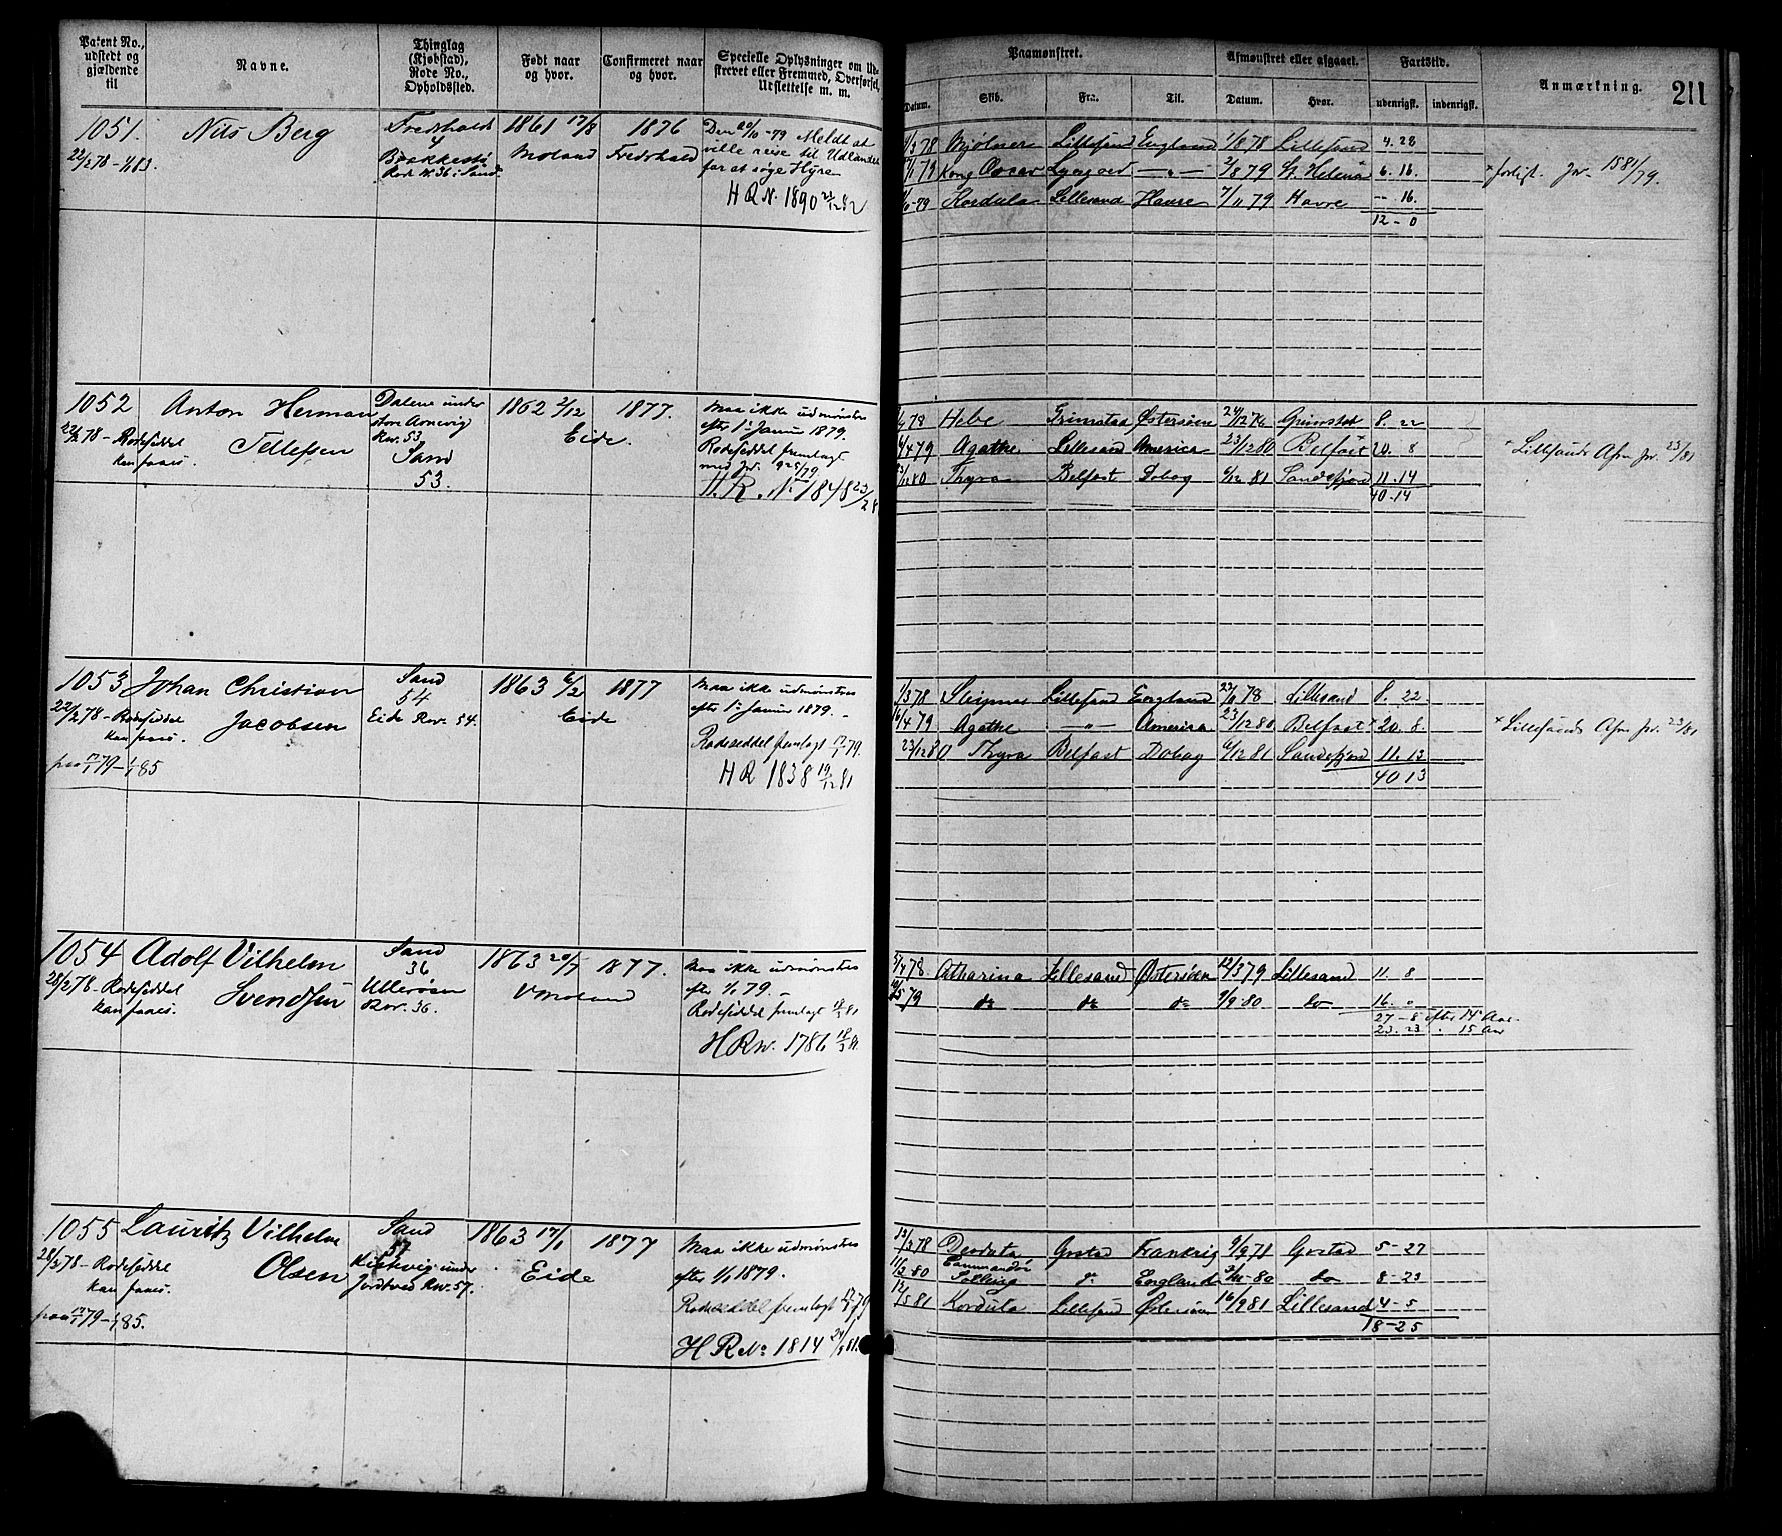 Patent No., udstedt og gjældende til
Navne.
Thinglag (Kjøbstad), Rode No., Opholdssted.
Født naar og hvor.
Confirmeret naar og hvor.
Specielle Oplysninger om Ud-
skrevet eller Fremmed, Overførsel,
Udslettelse m. m.
1051. Nils Berg
22/2 78 - 1/1 83.
4
Rode N. 36 i Sand
1861 17/8
Moland
1876
Fredrhald
Den 20/10 -79 Meldt at
ville reise til Udlandet
for at søge Hyre
H R N. 1890 21/12 82
1052 Anton Herman
Tellefsen
22/2 78 - Rodeseddel
kan faaes.
Dalene under
store
Rov. 53
Sand
53.
1862 2/12
1877.
Eide.
Maa ikke udmønstres
efter 1ste Januar 1879.
Rodeseddel fremlagt
med Jr. 925/79
H. R. N. 1848
1053 Johan Christian
Jacobsen
22/2 78 - Rodeseddel
kan faaes.
paa 79 - 1/1 85
Sand
54
Eide Rov. 54.
1863 6/2
1877
Eide
Maa ikke udmønstres
efter 1ste Januar 1879. -
Rodeseddel fremlagt 79.
H R 1838 19/12 81
1054 Adolf Vilhelm
Svendsen
28/2 78 - Rodeseddel
kan faaes.
Sand
36
Ulerøen
Rov. 36.
1863 20/7
1877.
V Moland
Maa ikke udmønstres
efter 1/1 79. -
Rodeseddel fremlagt 81
H R N. 1786 18/3 81
1055 Lauritz Vilhelm
Olsen
28/2 78 - Rodeseddel
kan faaes.
paa 79 - 1/1 85.
Sand
57
under
Rov. 57.
1863 17/1
1877
Eide
Maa ikke udmønstres
efter 1/1 1879.
Rodeseddel fremlagt 79
H R No 1814 81.
Paamønstret.
Afmønstret eller afgaaet.
Fartstid.
Anmærkning.
211
Datum. Skib. Fra. Til. Datum. Hvor. udenrigsk. indenrigsk.
78 Mjølner Lillesand England 1/8 78 Lillesand 4. 28
79 Kong Oscar Lyngør -„- 2/8 79 St. Helena 6. 16. × forligt. Jr. 1581/79.
79 Kordula Lillesand Havre 7/11 79 Havre -- 16.
12 - 0
78 Hebe Grimstad Østersøen Grimstad 8. 22
79 Agathe Lillesand America 23/12 80 Belfast 20. 8 × Lillesands Afm Jr. 23/81
23/12 80 Thyra Belfast Dobog 6/12 81 Sandefjord 11. 14
40. 14
78 Sleipner Lillesand England 78 Lillesand 8. 22
16/4 79 Agathe -„- America 23/12 80 Belfast × 20. 8. × Lillesands Afm Jr. 23/81
23/12 80 Thyra Belfast Dobog 6/12 81 Sandefjord 11. 13
40 13
5/4 78 Catharina Lillesand Østersøen 12/3 79 Lillesand 11. 8
79 do do do 9/9 80 do 16. „
27 - 8 efter 14 Aar.
23. 23 „ 15 Aar
78 Deodata Grstad Frankrig Grstad 5 - 27
80 Commandør
England 80 do 8 - 23
81 Kordula Lillesand Østersøen 16/9 81 Lillesand 4 - 5
18 - 25